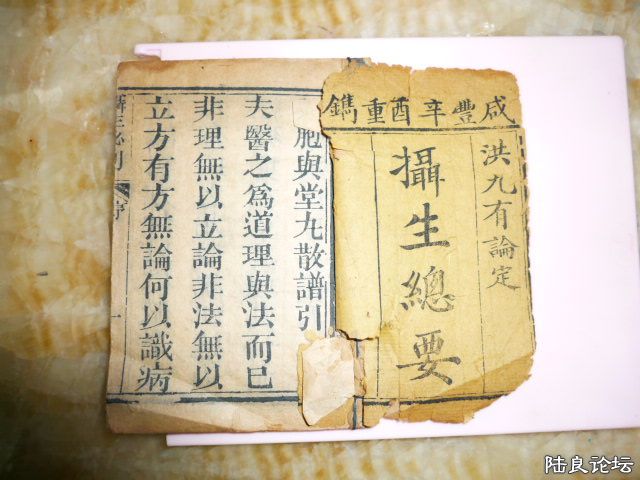 咸豐辛酉重鐫
洪九有論定
攝生總要
胞與堂丸散譜引
夫醫之爲道理與法而已
非理無以立論非法無以
立方有方無論何以識病
序
一
陆良论坛